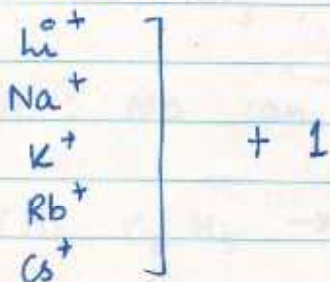 Li⁺
Na⁺
K⁺ + 1
Rb⁺
Cs⁺